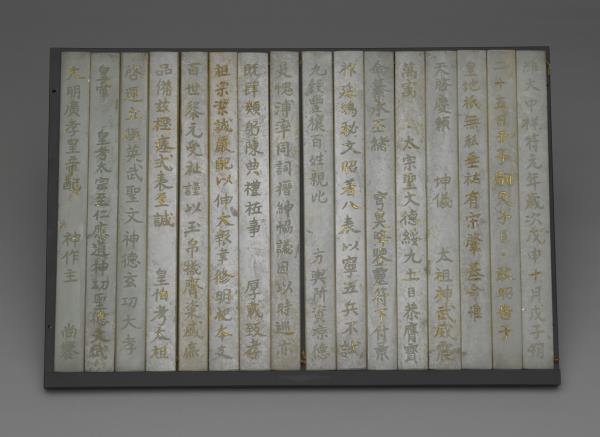 惟大中祥符元年歲次戊申十月戊子朔
二十五日壬子嗣天子臣 敢昭告于
皇地祇無私垂祐有宋肇基命惟
天啓慶賴 坤儀 太祖神武威震
萬寓 太宗聖文德綏九土臣恭膺寶
命纂承丕緒 穹昊降祥靈符下付景
祚延鴻祕文昭著八表以寧五兵不試
九穀豐穰百姓親比 方輿所資涼德
是愧溥率同詞搢紳協議因以時巡亦
既肆類躬陳典禮祗事 厚載致孝
祖宗潔誠嚴配以伸大報聿修明祀本支
百世黎元受祉謹以玉帛犧齊粢盛庶
品備茲禋瘞式表至誠 皇伯考太祖
啓運立極英武聖文神德玄功大孝
皇帝 皇考太宗至仁應道神功聖德文武
大明廣孝皇帝配 神作主 尚饗